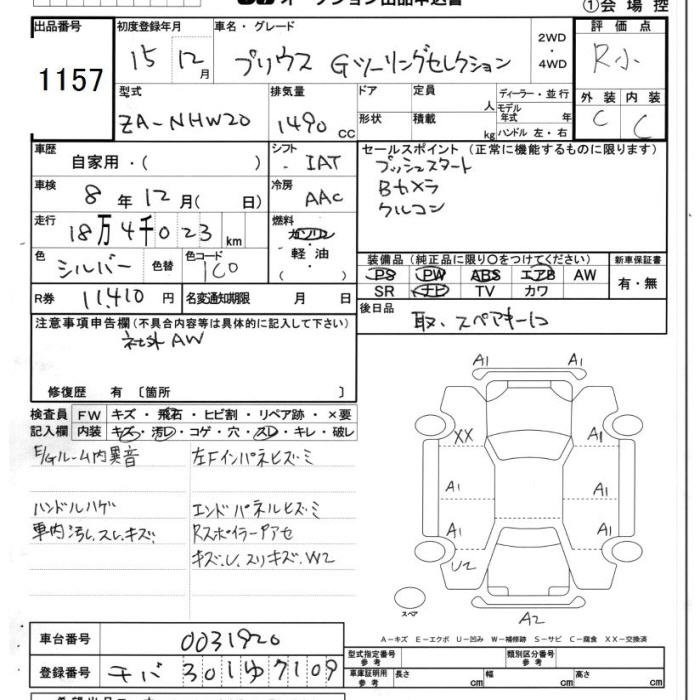 オークション出品申込書
①会場控
出品番号
1157
初度登録年月
15 12月
車名・グレード
プリウス Gツーリングセレクション
2WD・4WD
評価点
R小
外装 内装
C C
型式
ZA-NHW20
排気量
1490 cc
ドア
形状
定員 人
積載 kg
ディーラー・並行
モデル年式 年
ハンドル 左・右
車歴
自家用・( )
シフト
IAT
セールスポイント (正常に機能するものに限ります)
プッシュスタート
Bカメラ
クルコン
車検
8年12月( 日)
冷房
AAC
走行
18万4千023km
燃料
ガソリン
・軽油・
( )
色
シルバー
色替
色コード
1C0
装備品 (純正品に限り○をつけてください)
PS PW ABS エアB AW
SR ナビ TV カワ
新車保証書
有・無
R券 11,410円
名変通知期限 月 日
後日品
取、スペアキー1コ
注意事項申告欄(不具合内容等は具体的に記入して下さい)
社外AW
修復歴 有〔箇所 〕
検査員記入欄
FW キズ・飛石・ヒビ割・リペア跡・×要
内装 キズ・汚レ・コゲ・穴・スレ・キレ・破レ
E/Gルーム内異音
左FインパネヒズミA
ハンドルハゲ
エンドパネルヒズミ
車内汚レ、スレ、キズ、
RスポイラーアセA
キズ、U、スリキズ、W2
A1
A1
XX
A1
A1
A1
A1
A1
U2
A2
スペア
A-キズ E-エクボ U-凹み W-補修跡 S-サビ C-腐食 XX-交換済
車台番号 0031920
登録番号 チバ 301ゆ7109
型式指定番号 参考
類別区分番号 参考
車庫証明用 参考
長さ cm
幅 cm
高さ cm